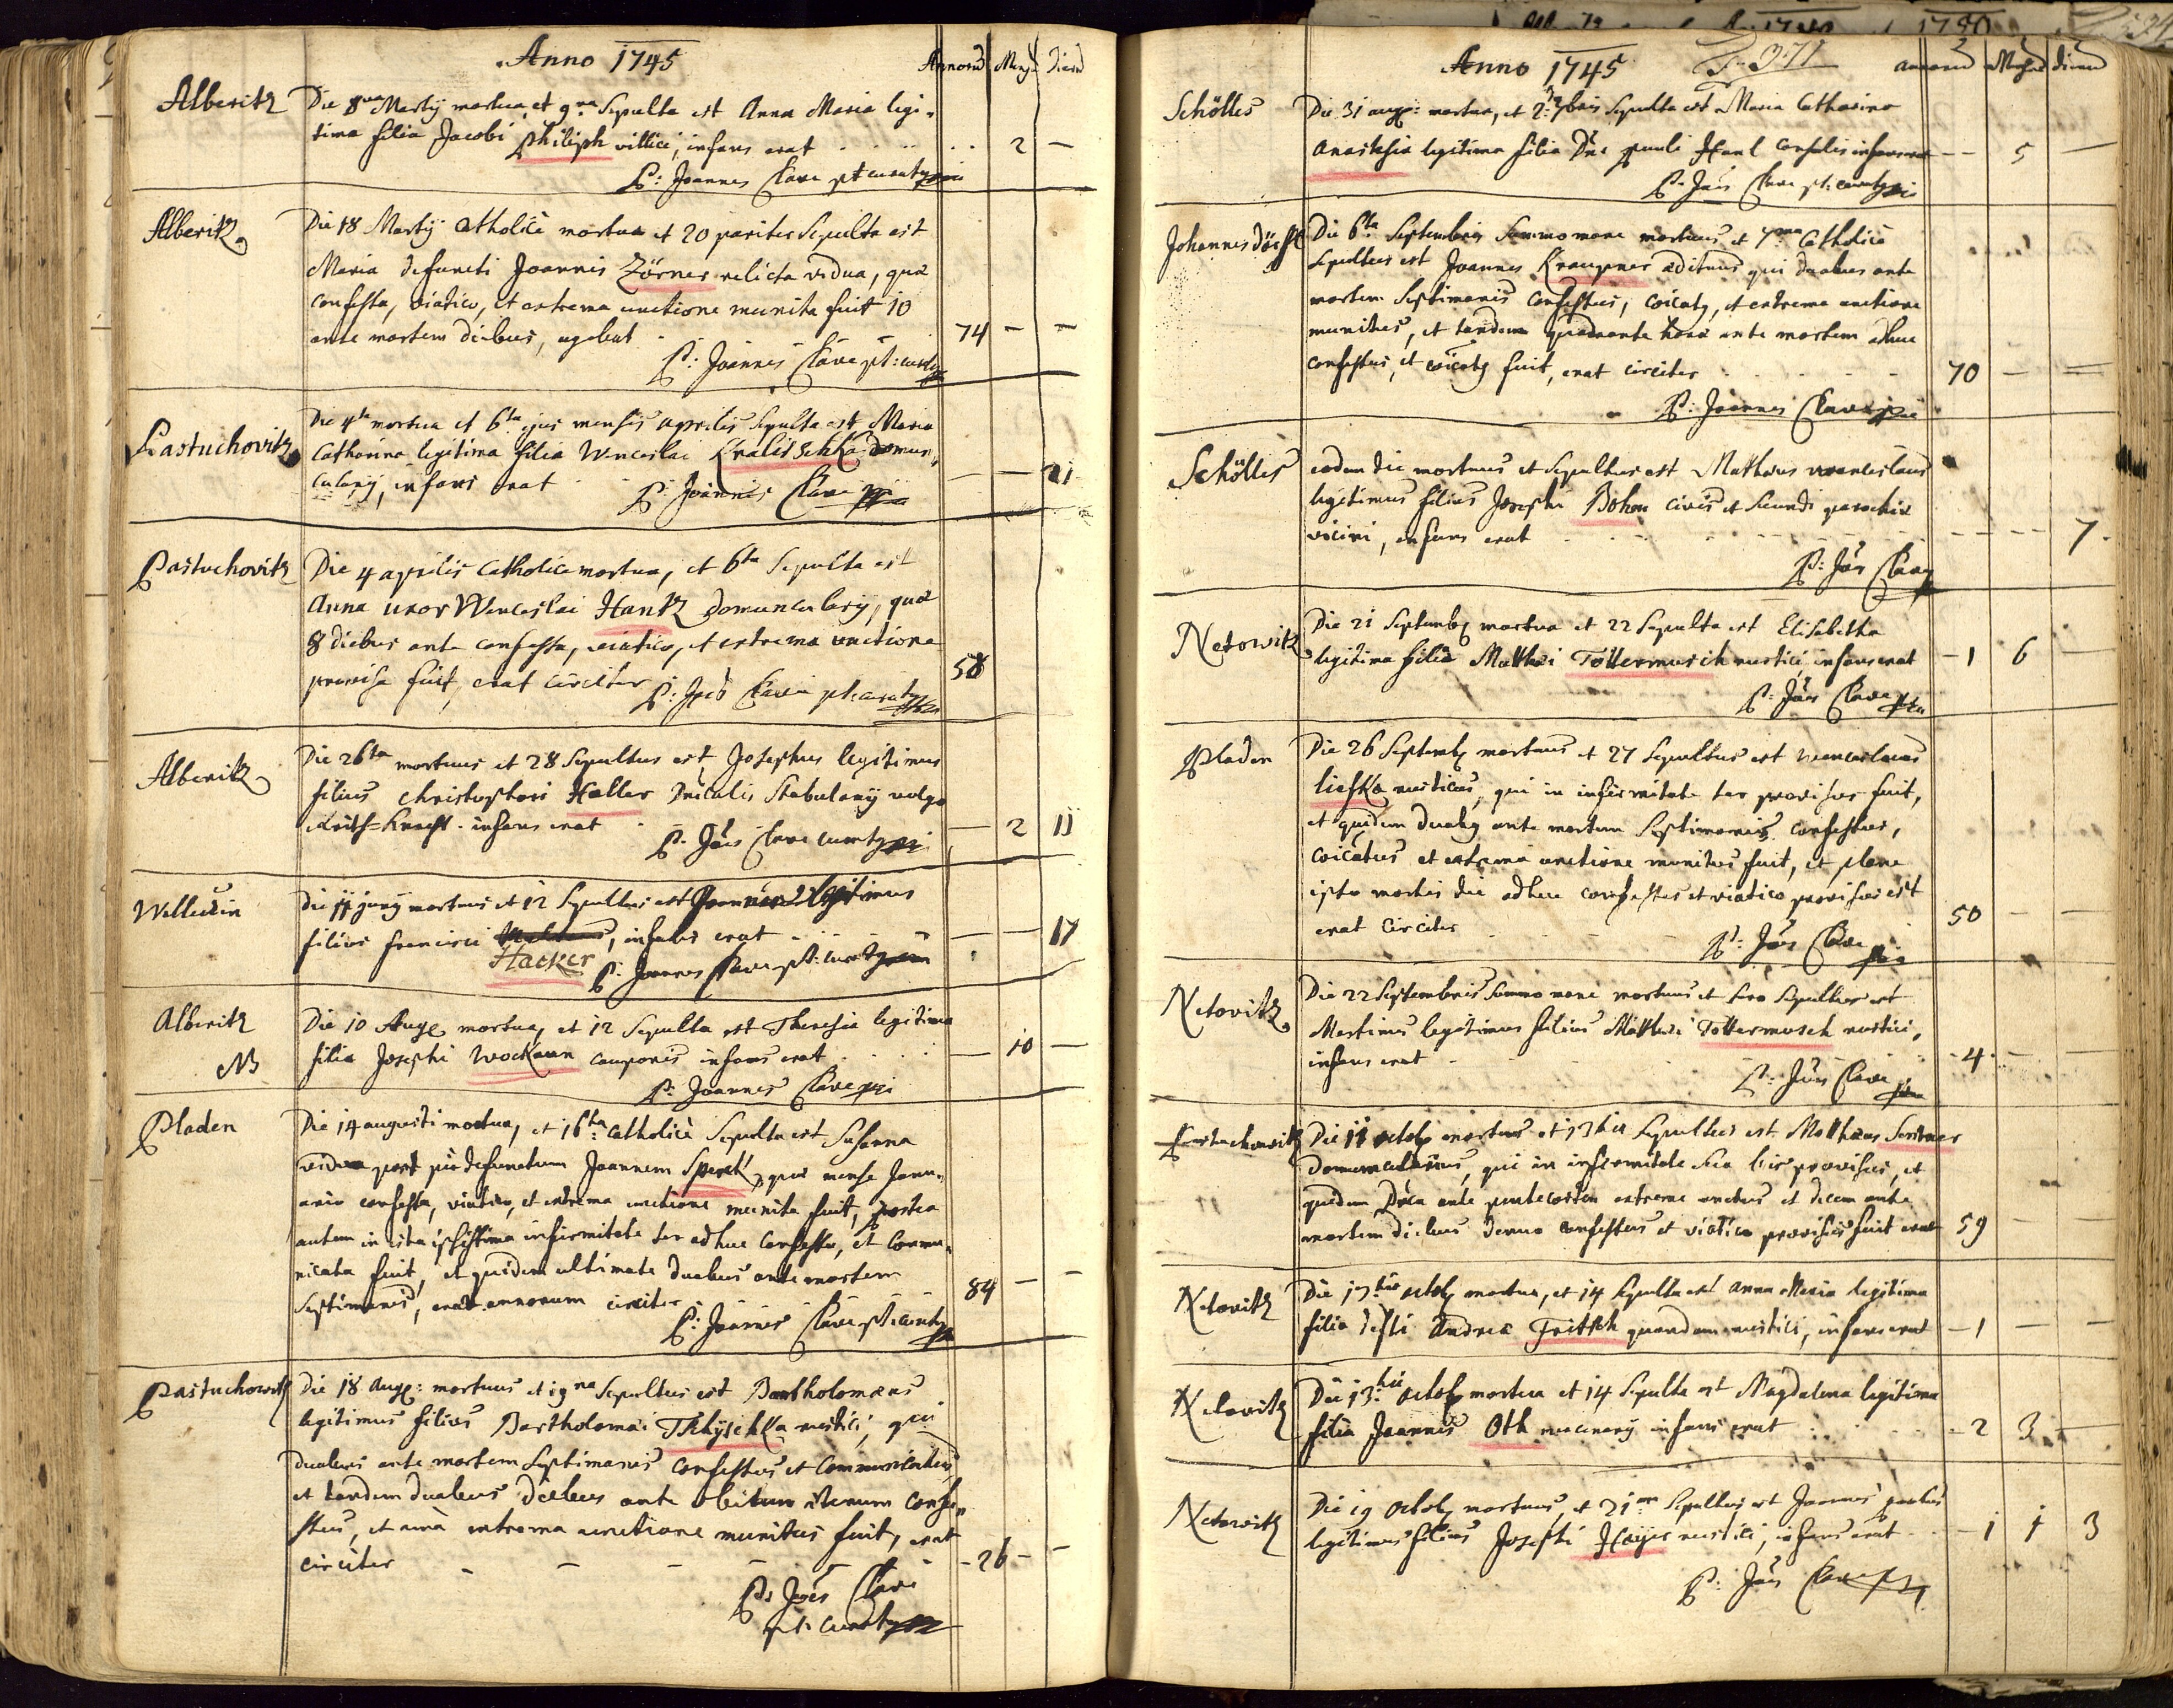 Anno 1745
Annorū Mens: Dierū
Alberitz
Die 8va Martÿ mortua, et 9na Sepulta est Anna Maria legi-
tima filia Jacobi Philiph villici, infans erat 2 -
P: Joannes Clave pt curatq
Alberitz
Die 18 Martÿ Catholicè mortua et 20 pariter Sepulta est
Maria defuncti Joannis Zörner relicta vidua, quæ
confessa, viatico, et extrema unctione munita fuit 10
ante mortem diebus, agebat 74 - -
P: Joannes Clave pt: curatq
Pastuchovitz
Die 4ta mortua et 6ta ejus mensis aprilis Sepulta est Maria
Catharina legitima filia Wenceslai Kralitschka domun-
culary, infans erat - - 21
P: Joannes Clave
Pastuchovitz
Die 4 aprilis Catholice mortua, et 6ta Sepulta est
Anna uxor Wenceslai Hantz domuncularÿ, quæ
8 diebus ante confessa, viatico, et extrema unctione
provisa fuit, erat circiter 58
P: Joës Clave pt: curatq
Alberitz
Die 26ta mortuus et 28 Sepultus est Josephus legitimus
filius Christophori Haller Dnicalis Stabularÿ vulgo
Knecht infans erat - 2 11
P: Joës Clave curatq
Wellutin
Die 11 junÿ mortuus et 12 Sepultus est Joannes legitimus
filius Francisci, infans erat - - 17
Hacker P: Joannes Clave pt: curatq
Alberitz
NB
Die 10 Augq mortua, et 12 Sepulta est Theresia legitima
filia Josephi Wockaun cauponis infans erat - 10 -
P: Joannes Clave
Pladen
Die 14 augusti mortua, et 16ta Catholicè Sepulta est Susanna
vidua post piè defunctum Joannem Sperk, quæ mense Janu-
ario confessa, viatico, et extrema unctione munita fuit, postea
autem in ista ipsissima infirmitate ter adhuc confessa, et Commu-
nicata fuit, et quidem ultimate duabus ante mortem
Septimanis, erat annorum circiter 84 - -
P: Joannes Clave pt: curatq
Pastuchowitz
Die 18 Augq: mortuus et 19na Sepultus est Bartholomæus
legitimus filius Bartholomæi Tschÿschka rustici, qui
duabus ante mortem Septimanis confessus et Communicatus,
et tandem duabus diebus ante obitum iterum confe-
ssus, et unà extrema unctione munitus fuit, erat
circiter - 26 - -
P: Joës Clave
pt: curatq
Anno 1745
annorū Mensiū dierū
Schölles
Die 31 augq: mortua, et 2: 7bris Sepulta est Maria Catharina
Anastasia legitima filia Dni Pauli Hanl Consulis infans erat - 5 -
P: Joës Clave pt: curatq
Johannesdörffl
Die 6ta Septembris Summo mane mortuus et 7ma Catholicè
Sepultus est Joannes Kraupner ædituus qui duabus ante
mortem Septimanis confessus, coicatq, et extrema unctione
munitus, et tandem quadrante horæ ante mortem adhuc
confessus, et coicatq fuit, erat circiter 70 - -
P: Joannes Clave
Schölles
eodem die mortuus et Sepultus est Mathæus wenceslaus
legitimus filius Josephi Bohm civis et Secundi parochiæ
vicini, infans erat - - 7
P: Joës Clave
Netowitz
Die 21 Septembq mortua et 22 Sepulta est Elisabetha
legitima filia Matthæi Tottermusch rustici, infans erat - 1 6 -
P: Joës Clave
Pladen
Die 26 Septembq mortuus et 27 Sepultus est wenceslaus
liefka rusticus, qui in infirmitate ter provisus fuit,
et quidem duabq ante mortem Septimanis confessus,
coicatus et extrema unctione munitus fuit, et plane
ipso mortis die adhuc confessus et viatico provisus est
erat circiter 50 - -
P: Joës Clave
Netovitz
Die 22 Septembris Summo mane mortuus et sero Sepultus est
Martinus legitimus filius Matthæi Tottermusch rustici,
infans erat - 4 - -
P: Joës Clave
Pastuchowitz
Die 11 octobq mortuus et 13tia Sepultus est Matthæus Sertner
domuncularius, qui in infirmitate sua bis provisus, et
quidem ante pentecosten extreme unctus et decem ante
mortem diebus denuo confessus et viatico provisus fuit erat 59 - -
Netovitz
Die 13tia octobq mortua, et 14 Sepulta est Anna Maria legitima
filia Andreæ Fritsch quondam rustici, infans erat - 1 - -
Netovitz
Die 13tia octobq mortua et 14 Sepulta est Magdalena legitima
filia Joannis Oth infans erat - 2 3 -
Netowitz
Die 19 octobq mortuus, et 21ma Sepultus est Joannes
legitimus filius Josephi Haÿer rustici, infans erat - 1 1 3
P: Joës Clave